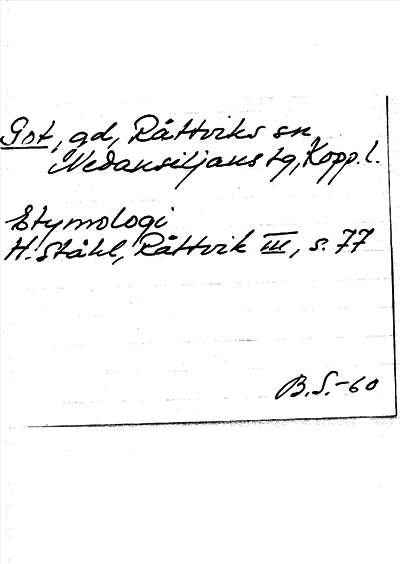 Got, gd, Rättviks sn
Nedansiljans tg, Kopp. l.
Etymologi
H. Ståhl, Rättvik III, s. 77
B.S.-60